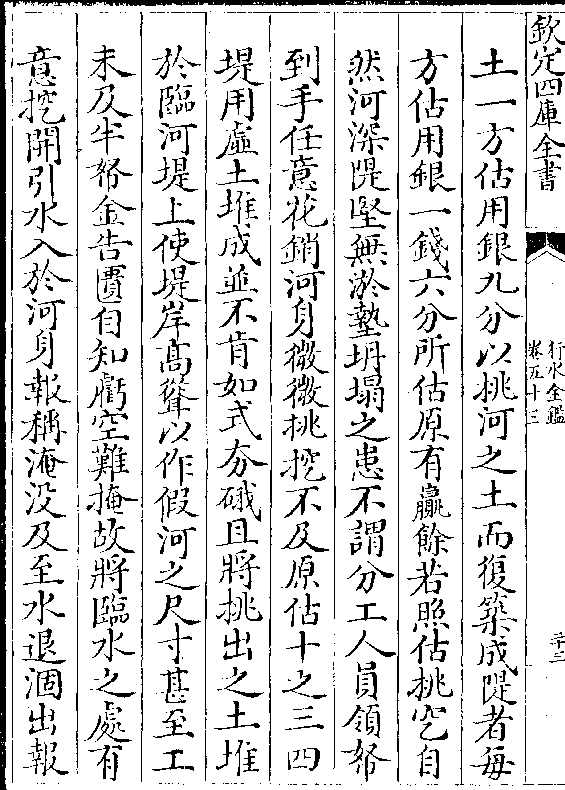 欽定四庫全書
行水金鑑
卷五十三
土一方估用銀九分以挑河之土而復築成隄者每
方估用銀一錢六分所估原有贏餘若照估挑空自
然河深隄堅無淤墊坍塌之患不謂分工人員領帑
到手任意花銷河身微微挑挖不及原估十之三四
堤用虛土堆成並不肯如式夯硪且將挑出之土堆
於臨河堤上使堤岸高聳以作假河之尺寸甚至工
未及半帑金告匱自知虧空難掩故將臨水之處有
意挖開引水入於河身報稱淹没及至水退涸出報